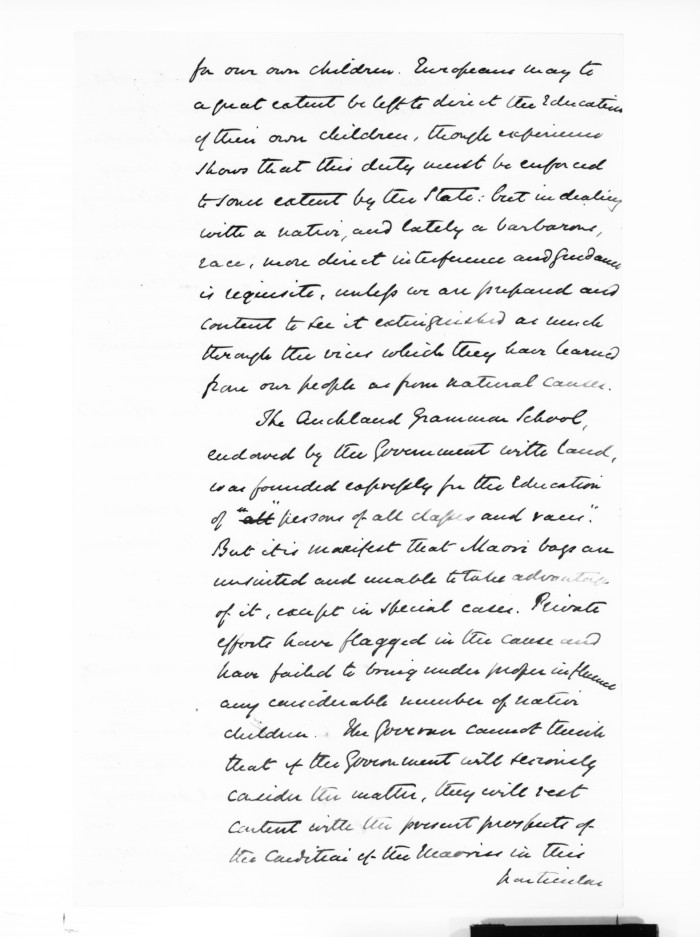 for our own children. Europeans may to
a great extent be left to direct the Education
of their own children, though experience
shows that this duty must be enforced
to some extent by the State: but in dealing
with a native, and lately a barbarous,
race, more direct interference and guidance
is requisite, unless we are prepared and
content to see it extinguished as much
through the vices which they have learned
from our people as from natural causes.
The Auckland Grammar School,
endowed by the Government with land,
was founded expressly for the Education
of "all" persons of all classes and races".
But it is manifest that Maori boys are
unsuited and unable to take advantage
of it, except in special cases. Private
efforts have flagged in the cause and
have failed to bring under proper influence
any considerable number of native
children. The Governor cannot think
that if the Government will seriously
consider the matter, they will rest
content with the present prospects of
the Condition of the Maories in this
particular